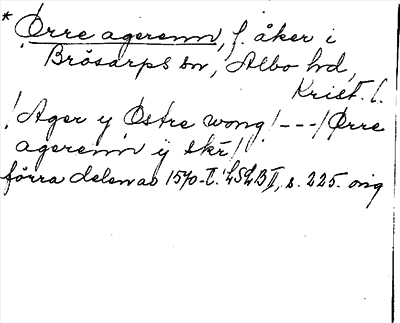 * Örre agerenn, f. åker i
Brösarps sn, Albo hd,
Krist. l.
! Ager y Östre wong / --- / Ørre
agerenn ij skr /
förra delen av 1570-t. LSLB II, s. 225. orig